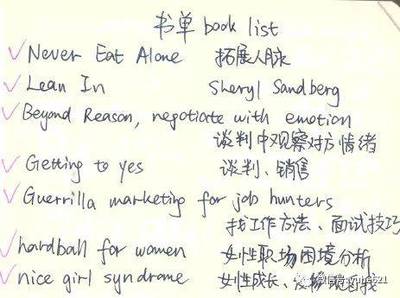 书单 book list
Never Eat Alone 拓展人脉
Lean In Sheryl Sandberg
Beyond Reason, negotiate with emotion
谈判中观察对方情绪
Getting to yes 谈判、销售
Guerrilla marketing for job hunters
找工作方法、面试技巧
hardball for women 女性职场困境分析
nice girl syndrome 女性成长、